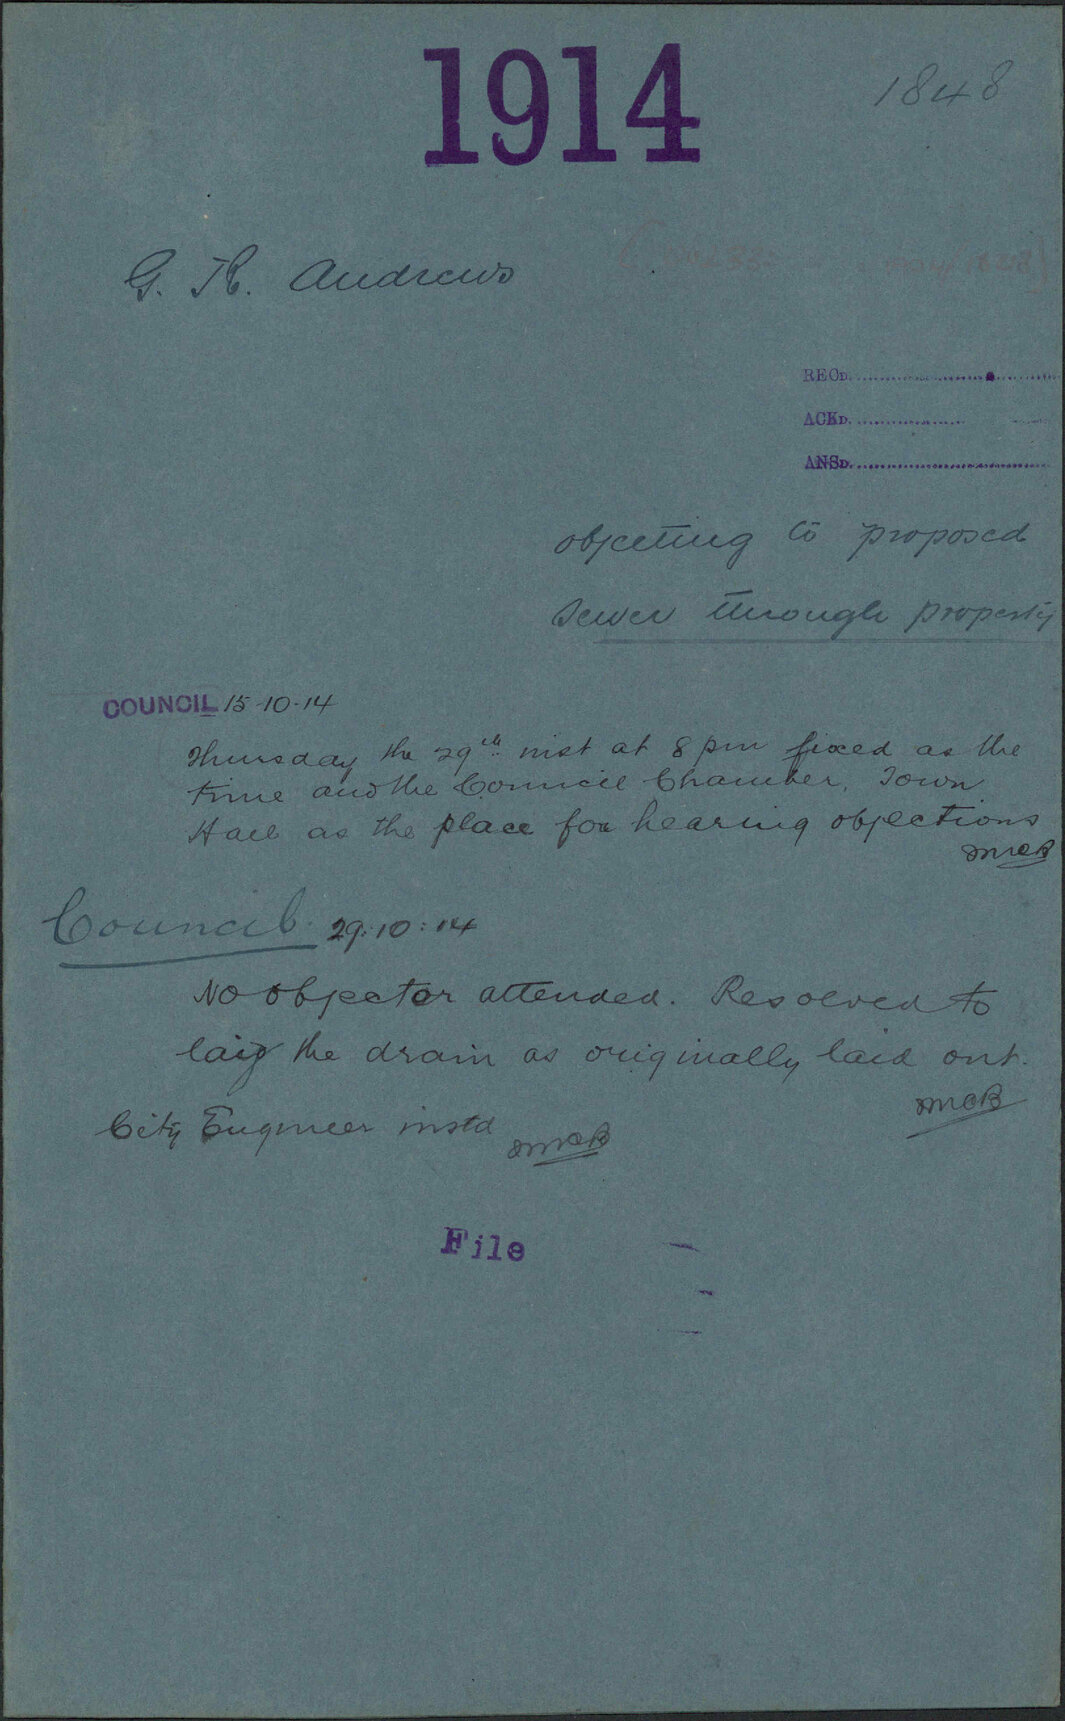 1914
1848
G. H. Andrews
RECD.
ACKD.
ANSD.
objecting to proposed
sewer through property
COUNCIL 15-10-14
Thursday the 29th inst at 8 pm fixed as the
time and the Council Chamber, Town
Hall as the place for hearing objections
Council 29:10:14
No objector attended. Resolved to
laiy the drain as originally laid out.
City Engineer instd
File